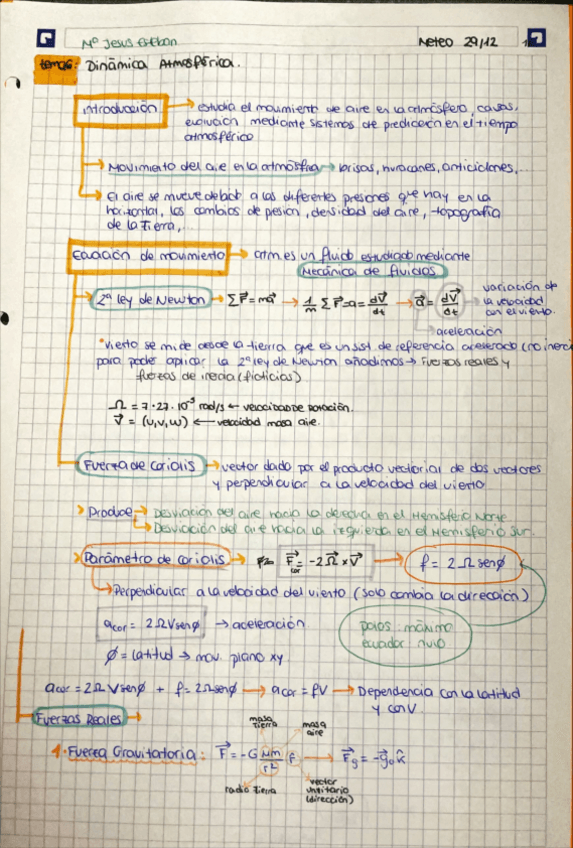 Mª Jesus Esteban Meteo 29/12 1
tema: Dinámica Atmosférica.
introducción → estudia el movimiento de aire en la atmósfera, causas,
evolución mediante sistemas de predicción en el tiempo
atmosférico
→ Movimiento del aire en la atmósfera → brisas, huracanes, anticiclones,...
→ El aire se mueve debido a las diferentes presiones que hay en la
horizontal, los cambios de presion, densidad del aire, topografía
de la Tierra,...
Ecuación de movimiento → atm. es un fluido estudiado mediante
Mecánica de fluidos
2ª Ley de Newton → ΣF⃗=ma⃗ → 1/m ΣF⃗=a= dV⃗/dt → a⃗ = dV⃗/dt → variación de
la velocidad
con el viento.
aceleración
*viento se mide desde la tierra que es un sist. de referencia acelerado (no inerci
para poder aplicar la 2ª ley de Newton añadimos → Fuerzas reales y
fuerzas de inercia (ficticias)
Ω = 7.27·10⁻⁵ rad/s ← velocidad de rotación.
V⃗ = (u,v,w) ← velocidad masa aire.
Fuerza de coriolis → vector dado por el producto vectorial de dos vectores
y perpendicular a la velocidad del viento
> Produce → Desviación del aire hacia la derecha en el Hemisferio Norte
→ Desviación del aire hacia la izquierda en el Hemisferio Sur.
> Parámetro de coriolis → F⃗cor = -2Ω⃗ x V⃗ → f = 2Ω senϕ
→ Perpendicular a la velocidad del viento (solo cambia la dirección)
acor = 2ΩVsenϕ → aceleración
polos: máximo
ecuador nulo
ϕ = latitud → mov. plano xy
acor = 2ΩVsenϕ + f = 2Ωsenϕ → acor = fV → Dependencia con la latitud
y con V.
Fuerzas Reales →
masa tierra
masa aire
1. Fuerza Gravitatoria: F⃗ = -G Mm/r² r̂ → F⃗g = -g⃗₀k̂
radio Tierra
vector
unitario
(dirección)